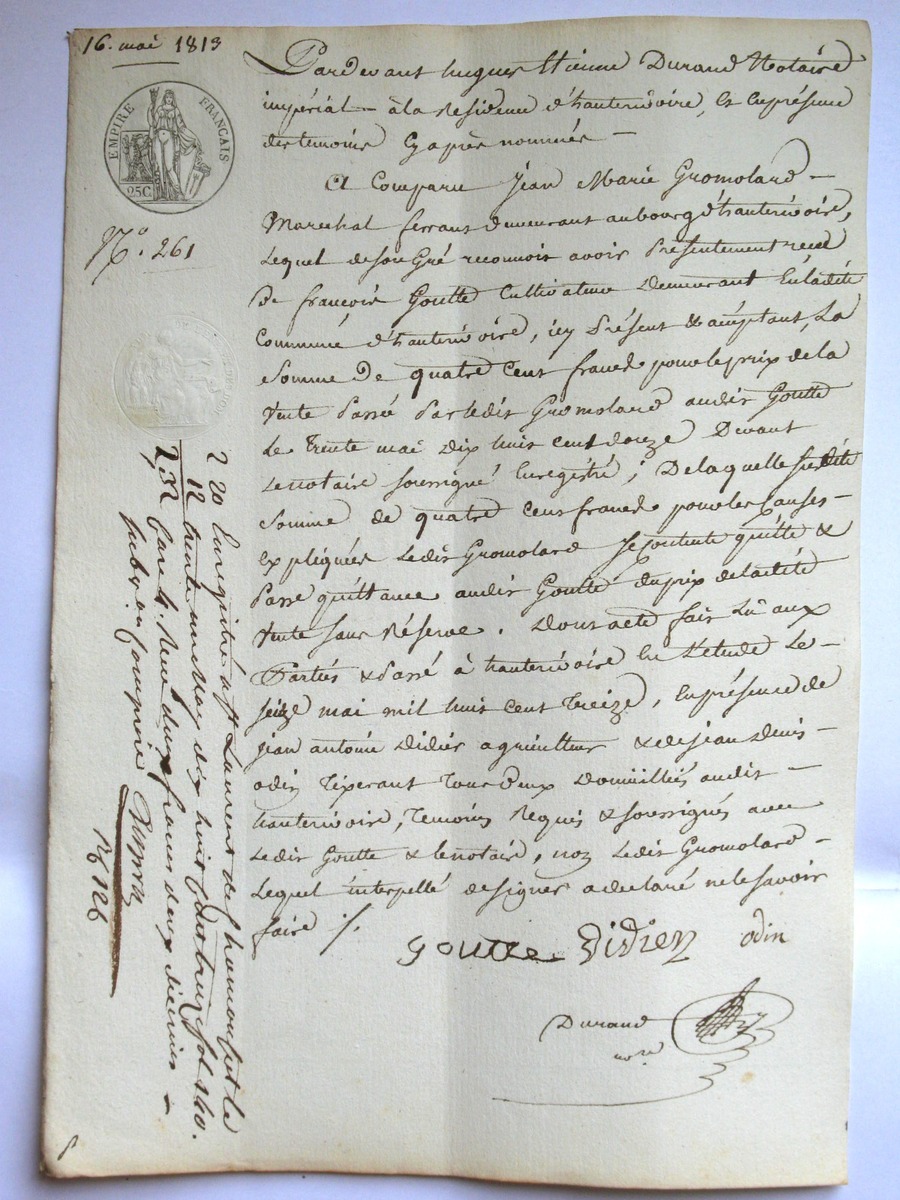 16. mai 1813
EMPIRE FRANÇAIS
25C
N.º 261
Pardevant hugues Etienne Durand Notaire
impérial - à la Residence d'hauterivoire, & en présence
des temoins Cy après nommés -
A Comparu Jean Marie Gromolard -
Marechal ferrant demeurant au bourg d'hauterivoire,
Lequel de son Gré reconnoit avoir Présentement recu
De françois Goutte Cultivateur Demeurant En ladite
Commune d'hauterivoire, icy Présent & acéptant, La
Somme De quatre Cent francs pour le prix de la
Vente Passé Par ledit Gromolard audit Goutte
Le Trente mai Dix huit cent douze Devant
Le notaire soussigné Enregistré ; De laquelle susdite
Somme de quatre Cent francs pour les Causes -
Expliquées Ledit Gromolard Se Contente quitte &
Passe quittance audit Goutte du prix de ladite
Vente sans Réserve. Dont acte fait Lû aux
Parties & Passé à hauterivoire En L'etude Le -
Seize mai mil huit cent Treize, En présence de
Jean antoine Didier agriculteur & de jean Denis
odin Tixerant Tous deux Domiciliés audit -
hauterivoire, Temoins Requis & soussignés avec
Ledit Goutte & le notaire, non Ledit Gromolard -
Lequel interpellé de signer a declaré ne le savoir
faire ./.
goutte Didier odin
Durand
no.re
2 20 Enregistré à St Laurent de Chamousset le
12 trente un May dix huit cent treize fol 140.
2,32 Case 4. Reçu deux francs deux décimes -
subv.on comprise